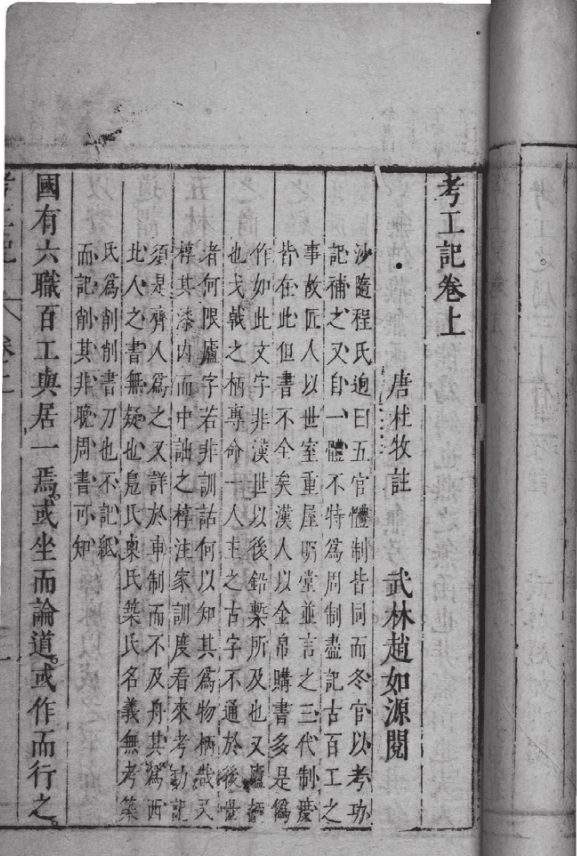 考工記卷上
唐杜牧註　武林趙如源閱
沙隨程氏逈曰五官體制皆同而冬官以考功
記補之又自一體不特為周制盡記古百工之
事故匠人以世室重屋明堂並言之三代制度
皆在此但書不全矣漢人以金帛購書多是偽
作如此文字非漢世以後鉛槧所及也又廬
也戈戟之柄專命一人主之古字不通於後世
者何限廬字若非訓詁何以知其為物柄哉又
椁其漆內而中詘之椁注家訓度看來考工記
須是齊人為之又詳於車制而不及舟其為西
北人之書無疑也鳧氏㮚氏築氏名義無考築
氏為削削書刀也不記紙
而記削其非晚周書可知
國有六職百工與居一焉或坐而論道或作而行之